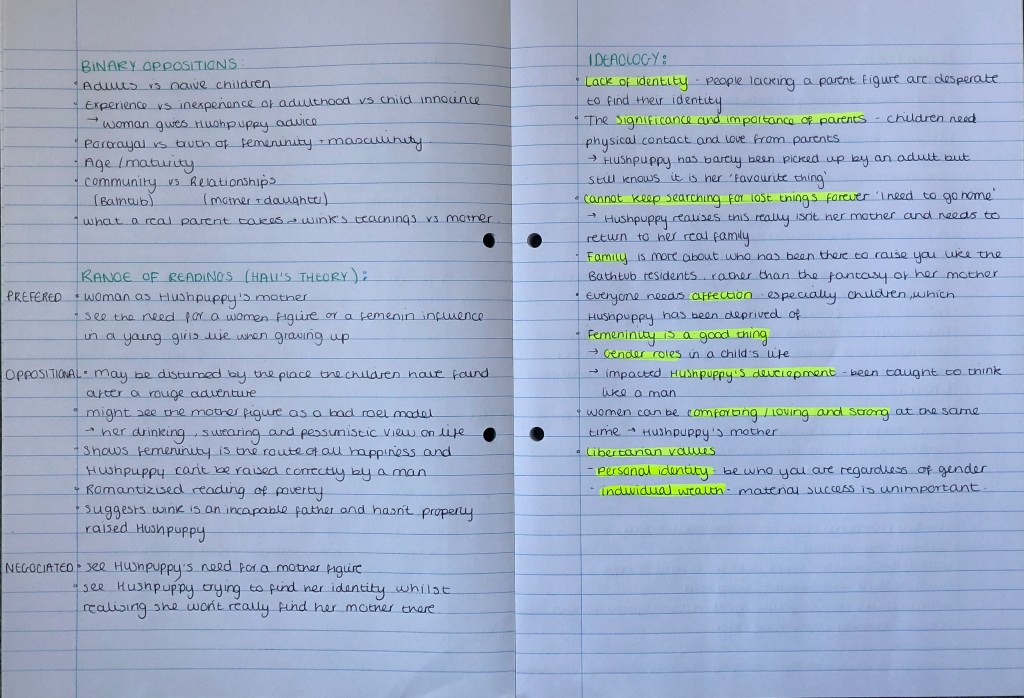 BINARY OPPOSITIONS:
• Adults vs naive children
• Experience vs inexperience of adulthood vs child innocince
→ woman gives Hushpuppy advice
• Portrayal vs truth of femeninity + masculinity
• Age / maturity
• community vs Relationships
(Bathtub) (mother + daughter)
• what a real parent takes → wink's teachings vs mother
RANGE OF READINGS (HALL'S THEORY):
PREFERED • woman as Hushpuppy's mother
• see the need for a women figure or a femenin influence
in a young girls life when growing up
OPPOSITIONAL • may be disturbed by the place the children have found
after a rouge adventure
• might see the mother figure as a bad roel model
→ her drinking, swearing and pessimistic view on life
• shows femeninity is the route of all happiness and
Hushpuppy can't be raised correctly by a man
• Romantizised reading of poverty
• suggests wink is an incapable father and hasn't properly
raised Hushpuppy
NEGOCIATED • see Hushpuppy's need for a mother figure
• see Hushpuppy trying to find her identity whilst
realising she won't really find her mother there
IDEAOLOGY:
• Lack of identity - people lacking a parent figure are desperate
to find their identity
• The significance and importance of parents - children need
physical contact and love from parents
→ Hushpuppy has barely been picked up by an adult but
still knows it is her 'favourite thing'
• cannot keep searching for lost things forever 'I need to go home'
→ Hushpuppy realises this really isnt her mother and needs to
return to her real family
• Family is more about who has been there to raise you like the
Bathtub residents, rather than the fantasy of her mother
• Everyone needs affection - especially children, which
Hushpuppy has been deprived of
• Femeninity is a good thing
→ Gender roles in a child's life
→ impacted Hushpuppy's development - been taught to think
like a man
• women can be comforting / loving and strong at the same
time → Hushpuppy's mother
• Libertarian values
- Personal identity - be who you are regardless of gender
- individual wealth - material success is unimportant.